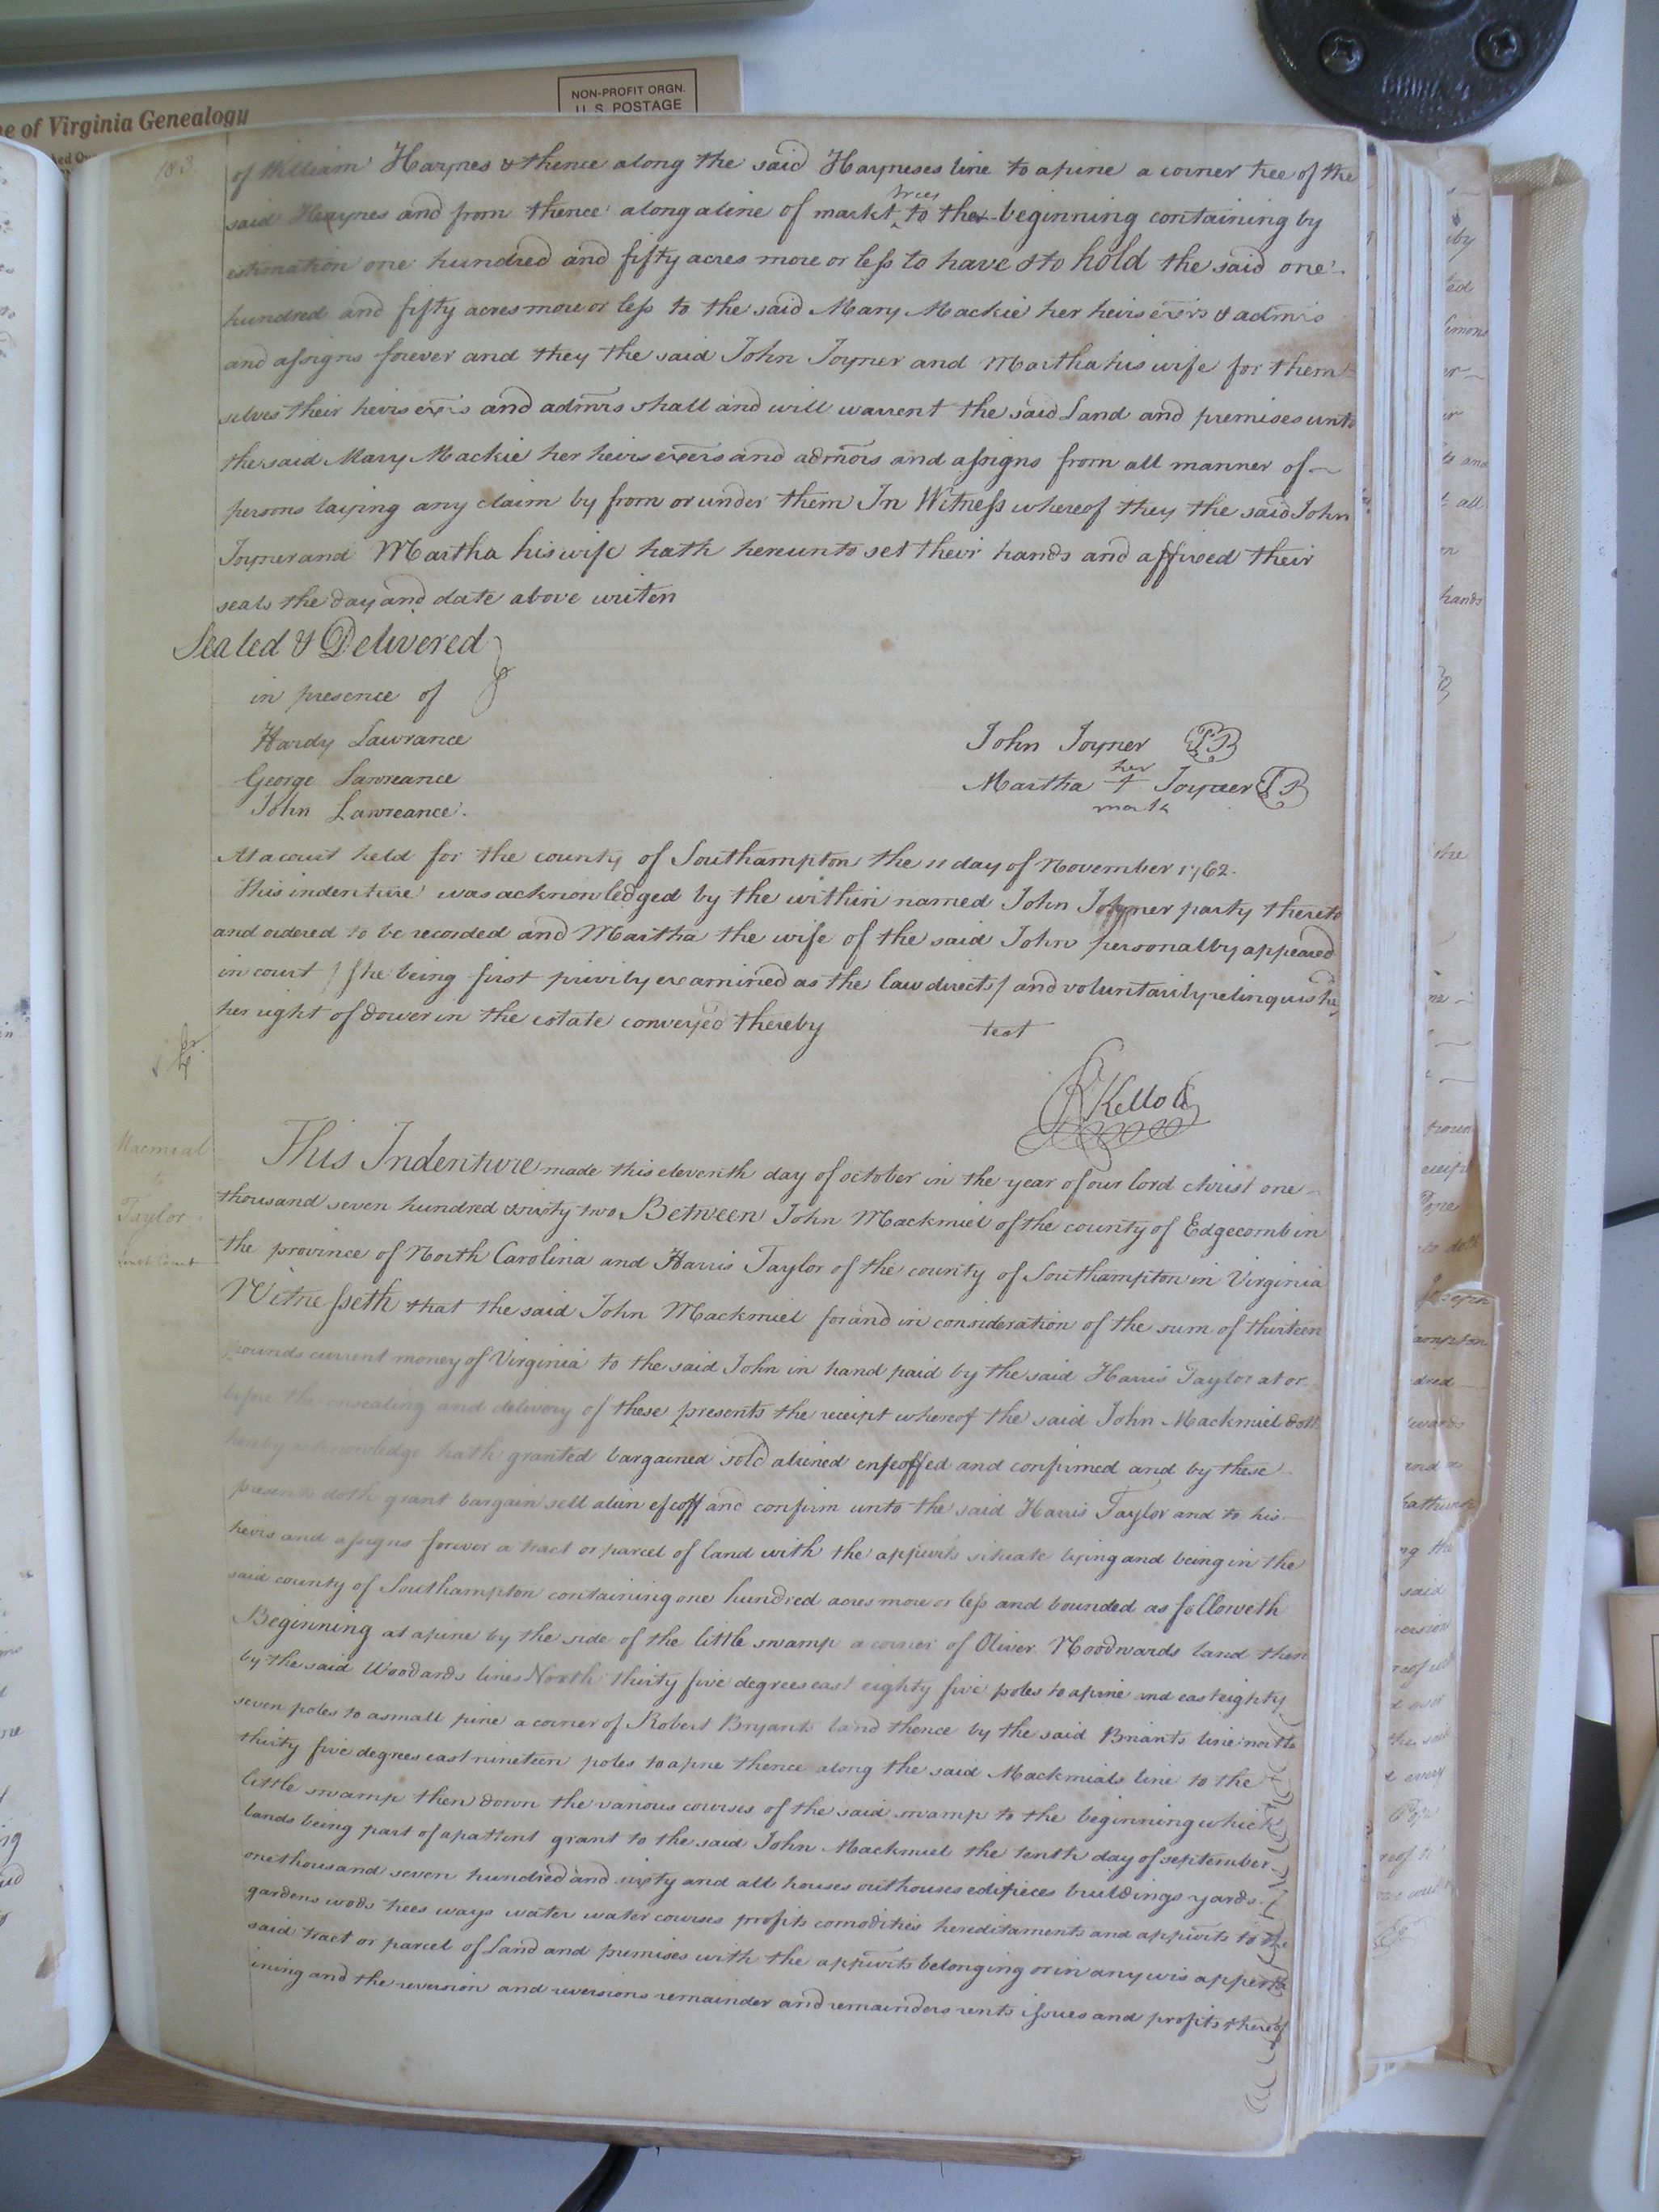 NON-PROFIT ORGN.
U. S. POSTAGE
e of Virginia Genealogy
183
of William Haynes & thence along the said Hayneses line to a pine a corner tree of the
said Haynes and from thence along a line of markt trees to the beginning containing by
estimation one hundred and fifty acres more or less to have & to hold the said one
hundred and fifty acres more or less to the said Mary Mackie her heirs exers & admrs
and assigns forever and they the said John Joyner and Martha his wife for them
selves their heirs exrs and admrs shall and will warrent the said Land and premises unto
the said Mary Mackie her heirs exers and admors and assigns from all manner of
persons laying any claim by from or under them In Witness whereof they the said John
Joyner and Martha his wife hath hereunto set their hands and affixed their
seals the day and date above writen
Sealed & Delivered
in presence of
Hardy Lawrance
George Lawreance
John Lawreance.
John Joyner
Martha her + mark Joyner
At a court held for the county of Southampton the 11 day of November 1762.
This indenture was acknowledged by the within named John Joyner party thereto
and ordered to be recorded and Martha the wife of the said John personally appeared
in court / she being first privily examined as the law directs / and voluntarily relinquishd
her right of dower in the estate conveyed thereby
test
R Kello
Macmial
to
Taylor
This Indenture made this eleventh day of october in the year of our lord christ one
thousand seven hundred & sixty two Between John Mackmiel of the county of Edgecomb in
the province of North Carolina and Harris Taylor of the county of Southampton in Virginia
Witnesseth that the said John Mackmiel for and in consideration of the sum of thirteen
pounds current money of Virginia to the said John in hand paid by the said Harris Taylor at or
before the ensealing and delivery of these presents the receipt whereof the said John Mackmiel doth
hereby acknowledge hath granted bargained sold aliened enfeoffed and confirmed and by these
presents doth grant bargain sell alien efeoff and confirm unto the said Harris Taylor and to his
heirs and assigns forever a tract or parcel of land with the appurts situate lying and being in the
said county of Southampton containing one hundred acres more or less and bounded as followeth
Beginning at a pine by the side of the little swamp a corner of Oliver Woodwards land then
by the said Woodards lines North thirty five degrees east eighty five poles to a pine and east eighty
seven poles to a small pine a corner of Robert Bryants land thence by the said Briants line north
thirty five degrees east nineteen poles to a pne thence along the said Mackmials line to the
little swamp then down the various courses of the said swamp to the beginning which
lands being part of a pattent grant to the said John Mackmiel the tenth day of september
one thousand seven hundred and sixty and all houses outhouses edifieces buildings yards
gardens wods trees ways water water courses profits comodities hereditaments and appurts to the
said tract or parcel of Land and premises with the appurts belonging or in any wis apperta
ining and the reversion and reversions remainder and remainders rents issues and profits thereof